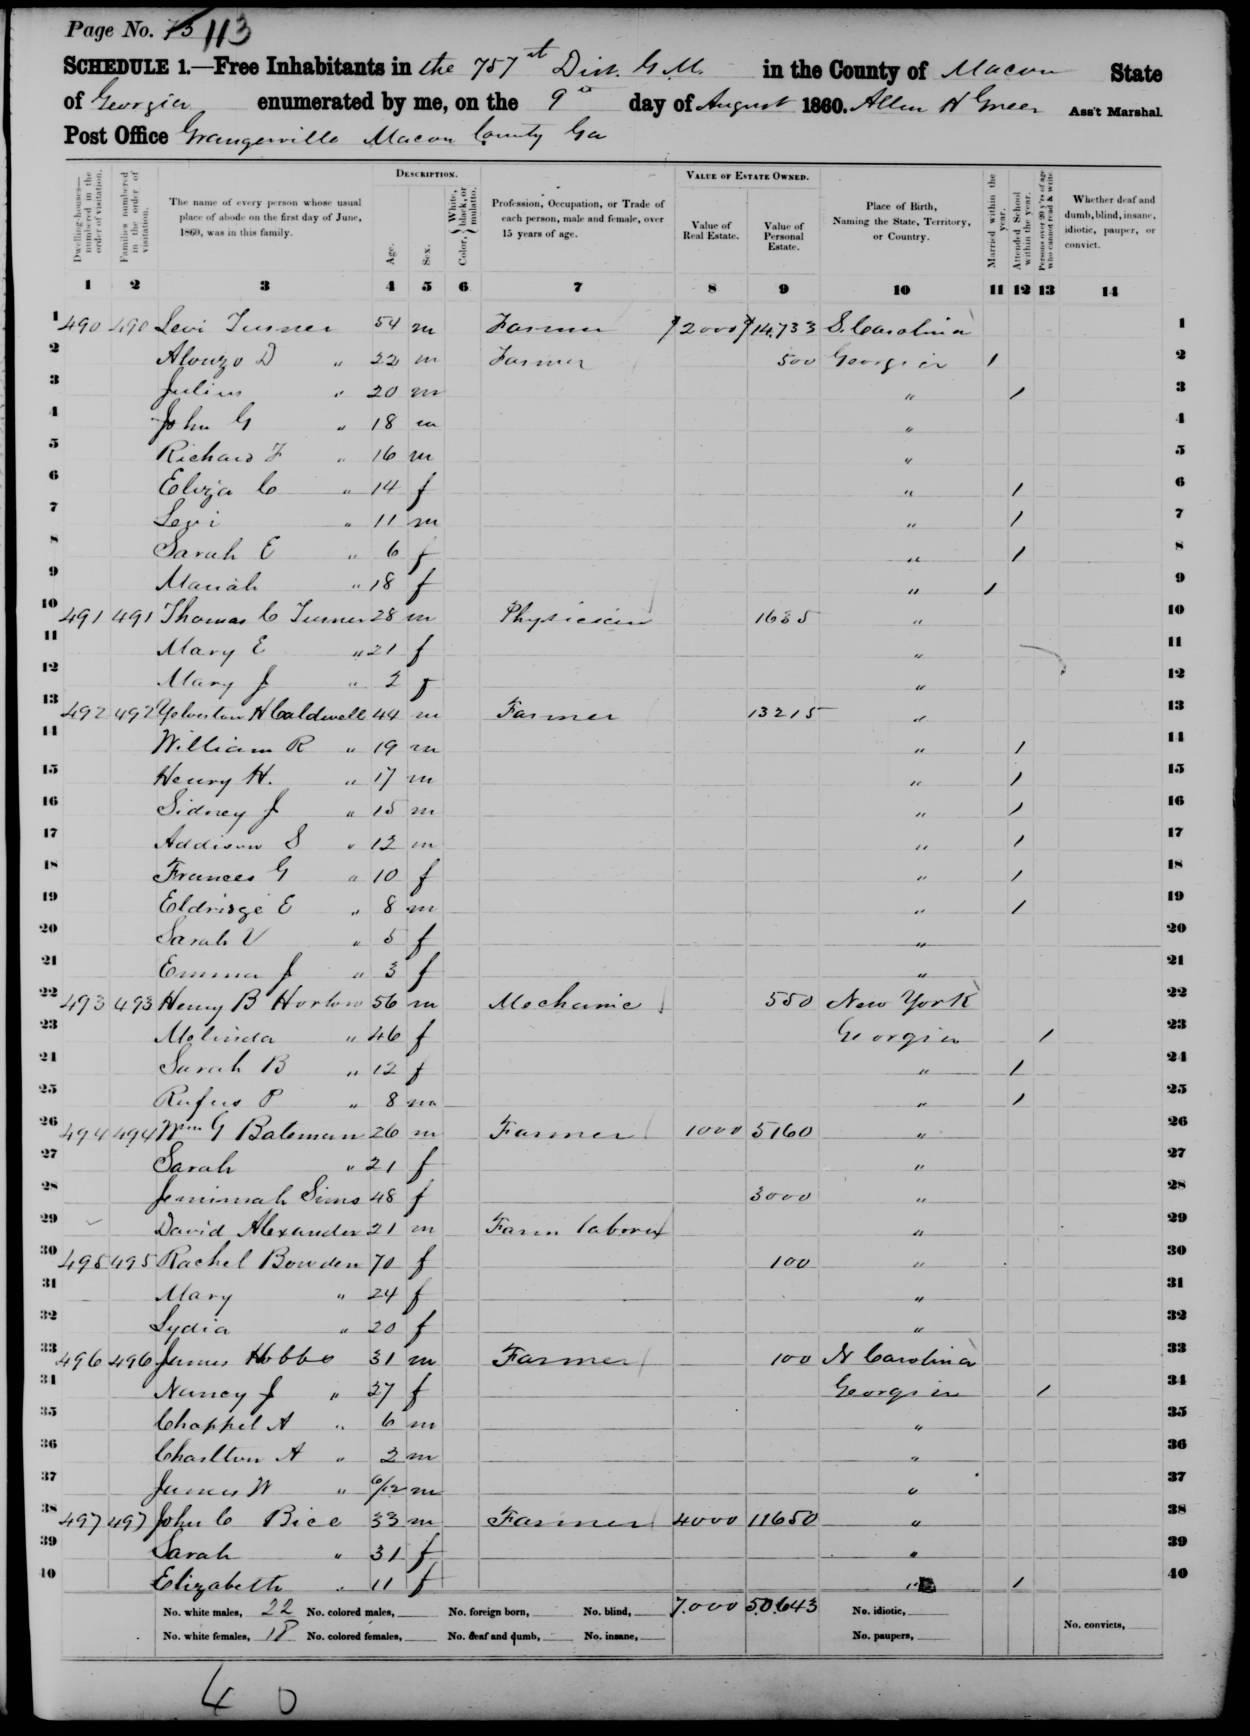 Page No. 75 113
SCHEDULE 1.—Free Inhabitants in the 757th Dist. G. M. in the County of Macon State
of Georgia enumerated by me, on the 9th day of August 1860. Allen H Greer Ass't Marshal.
Post Office Grangerville Macon County Ga
DESCRIPTION. VALUE OF ESTATE OWNED.
Dwelling-houses—numbered in the order of visitation. Families numbered in the order of visitation. The name of every person whose usual place of abode on the first day of June, 1860, was in this family. Age. Sex. Color, White, black, or mulatto. Profession, Occupation, or Trade of each person, male and female, over 15 years of age. Value of Real Estate. Value of Personal Estate. Place of Birth, Naming the State, Territory, or Country. Married within the year. Attended School within the year. Persons over 20 y'rs of age who cannot read & write. Whether deaf and dumb, blind, insane, idiotic, pauper, or convict.
1 2 3 4 5 6 7 8 9 10 11 12 13 14
1 490 490 Levi Turner 54 m Farmer $2000 $14,733 S. Carolina 1
2 Alonzo D " 22 m Farmer 500 Georgia / 2
3 Julius " 20 m " / 3
4 John G " 18 m " 4
5 Richard F " 16 m " 5
6 Eliza C " 14 f " / 6
7 Levi " 11 m " / 7
8 Sarah E " 6 f " / 8
9 Mariah " 18 f " / 9
10 491 491 Thomas C Turner 28 m Physician 1635 " 10
11 Mary E " 21 f " 11
12 Mary J " 2 f " 12
13 492 492 Yelverton H Caldwell 44 m Farmer 13215 " 13
14 William R " 19 m " / 14
15 Henry H. " 17 m " / 15
16 Sidney J " 15 m " / 16
17 Addison S " 12 m " / 17
18 Frances G " 10 f " / 18
19 Eldridge E " 8 m " / 19
20 Sarah V " 5 f " 20
21 Emma J " 3 f " 21
22 493 493 Henry B Horton 56 m Mechanic 550 New York 22
23 Melinda " 46 f Georgia / 23
24 Sarah B " 12 f " / 24
25 Rufus P " 8 m " / 25
26 494 494 Wm G Bateman 26 m Farmer 1000 5160 " 26
27 Sarah " 21 f " 27
28 Jemimah Sims 48 f 3000 " 28
29 David Alexander 21 m Farm laborer " 29
30 495 495 Rachel Bowden 70 f 100 " 30
31 Mary " 24 f " 31
32 Lydia " 20 f " 32
33 496 496 James Hobbs 31 m Farmer 100 N Carolina 33
34 Nancy J " 27 f Georgia / 34
35 Chappel A " 6 m " 35
36 Charlton A " 2 m " 36
37 James W " 6/12 m " 37
38 497 497 John C Rice 33 m Farmer 4000 11650 " 38
39 Sarah " 31 f " 39
40 Elizabeth " 11 f " / 40
No. white males, 22 No. colored males, No. foreign born, No. blind, 7.000 50.643 No. idiotic,
No. white females, 18 No. colored females, No. deaf and dumb, No. insane, No. paupers, No. convicts,
40